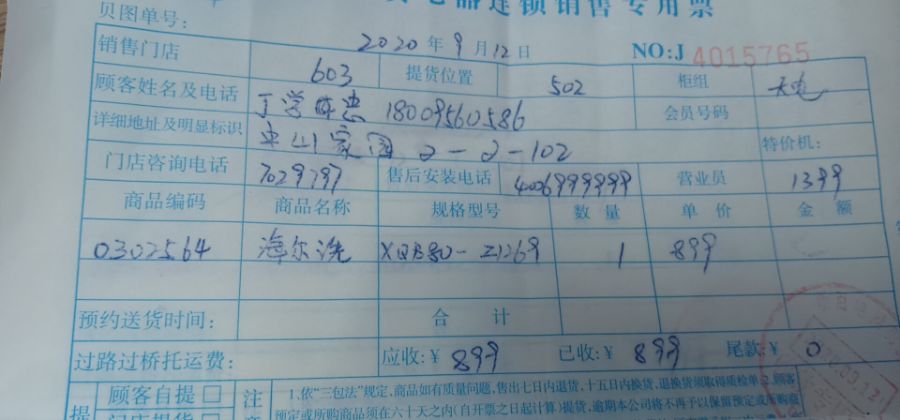 电器连锁销售专用票
贝图单号：
2020年9月12日 NO:J 4015765
销售门店 603 提货位置 502 柜组
顾客姓名及电话 丁学忠 18009560586 会员号码
详细地址及明显标识 家园 2-2-102 特价机：
门店咨询电话 7029797 售后安装电话 4006999999 营业员 1399
商品编码 商品名称 规格型号 数量 单价 金额
0302564 海尔洗 XQB80-Z1269 1 899
预约送货时间： 合计
过路过桥托运费： 应收：¥ 899 已收：¥ 899 尾款：¥ 0
提 顾客自提□ 注 1.依“三包法”规定，商品如有质量问题，售出七日内退货，十五日内换货，退换货须取得质检单2.顾客
预定或所购商品须在六十天之内(自开票之日起计算)提货，逾期本公司将不再予以保留预定或所购